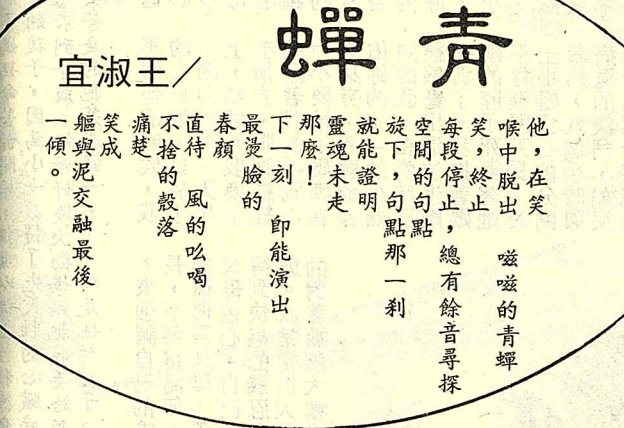 青蟬
／王淑宜
他，在笑
喉中脫出　嗞嗞的青蟬
笑，終止
每段停止，總有餘音尋探
空間的句點
旋下，句點那一剎
就能證明
靈魂未走
那麼！
下一刻　即能演出
最燙臉的
春顏
直待　風的吆喝
不捨的殼落
痛楚
笑成
軀與泥交融最後
一傾。